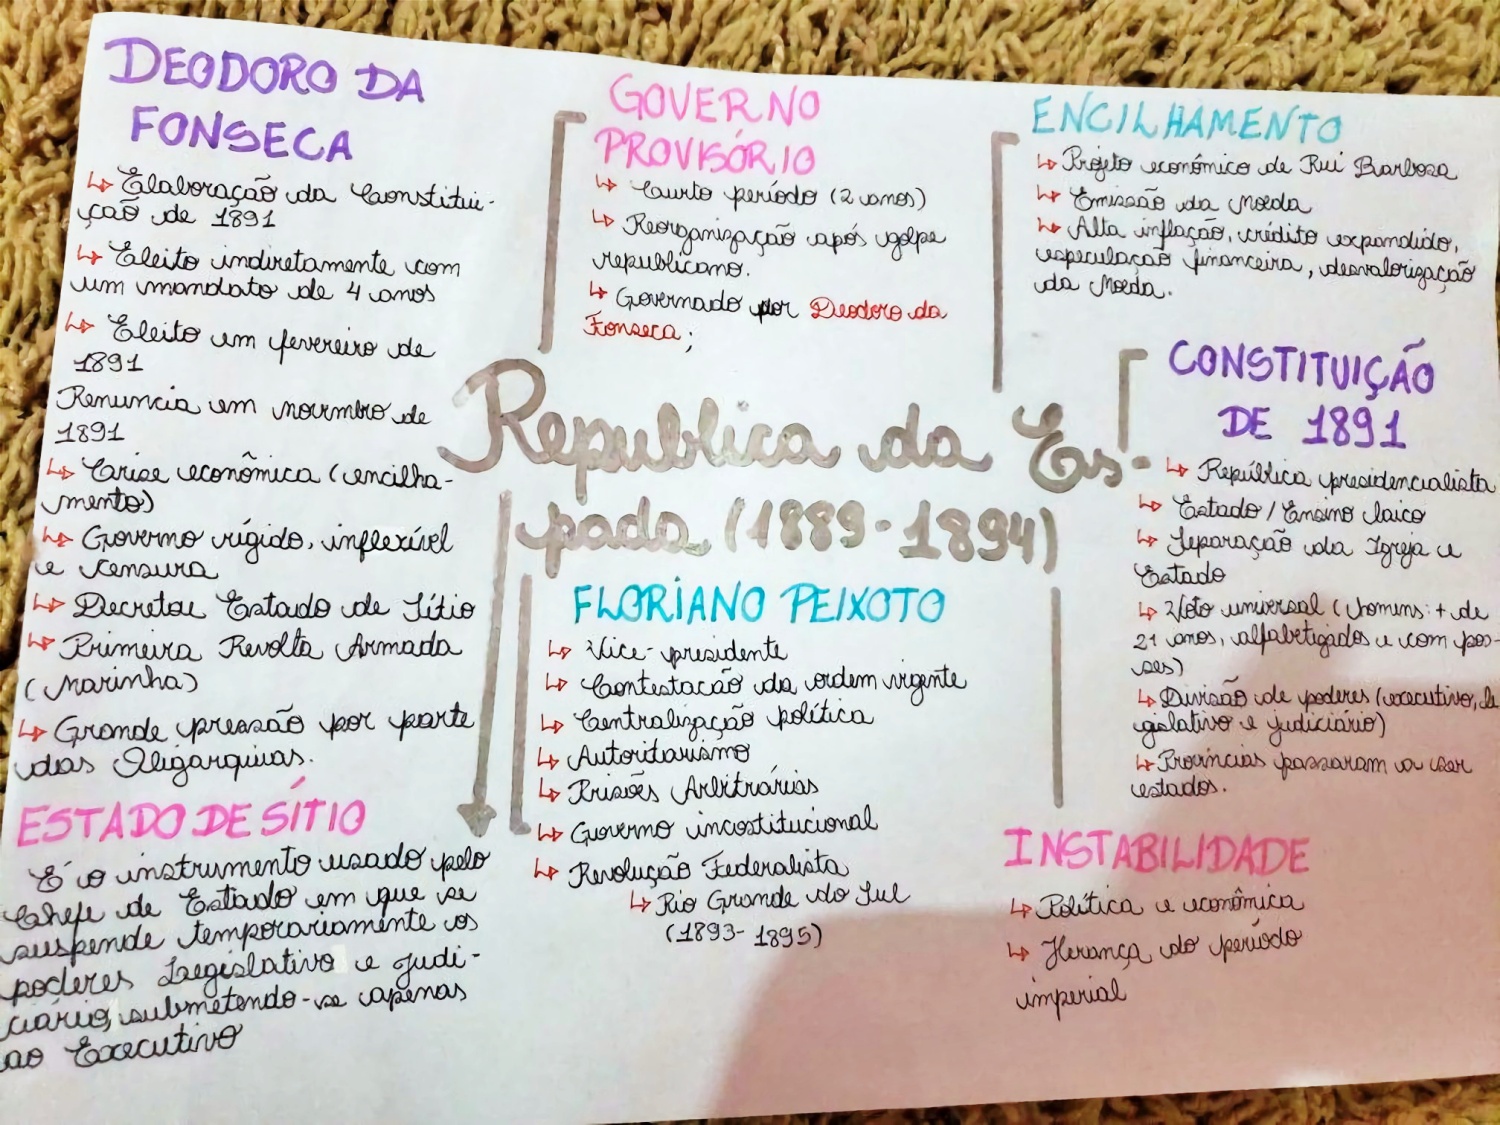 DEODORO DA
FONSECA
↳ Elaboração da Constitui-
ção de 1891
↳ Eleito indiretamente com
um mandato de 4 anos
↳ Eleito em fevereiro de
1891
Renuncia em novembro de
1891
↳ Crise econômica (encilha-
mento)
↳ Governo rígido, inflexível
e censura
↳ Decretou Estado de Sítio
↳ Primeira Revolta Armada
(Marinha)
↳ Grande pressão por parte
das Oligarquias.
ESTADO DE SÍTIO
É o instrumento usado pelo
Chefe de Estado em que se
suspende temporariamente os
poderes Legislativo e Judi-
ciário, submetendo-se apenas
ao Executivo
GOVERNO
PROVISÓRIO
↳ Curto período (2 anos)
↳ Reorganização após golpe
republicano.
↳ Governado por Deodoro da
Fonseca;
ENCILHAMENTO
↳ Projeto econômico de Rui Barbosa
↳ Emissão da Moeda
↳ Alta inflação, crédito expandido,
especulação financeira, desvalorização
da Moeda.
Republica da Es-
pada (1889-1894)
FLORIANO PEIXOTO
↳ Vice-presidente
↳ Contestacão da ordem vigente
↳ Centralização política
↳ Autoritarismo
↳ Prisões Arbitrárias
↳ Governo incostitucional
↳ Revolução Federalista
↳ Rio Grande do Sul
(1893-1895)
CONSTITUIÇÃO
DE 1891
↳ República presidencialista
↳ Estado/Ensino laico
↳ Separação da Igreja e
Estado
↳ Voto universal (homens: + de
21 anos, alfabetizados e com pos-
ses)
↳ Divisão de poderes (executivo, le
gislativo e judiciário)
↳ Províncias passaram a ser
estados.
INSTABILIDADE
↳ Política e econômica
↳ Herança do período
imperial